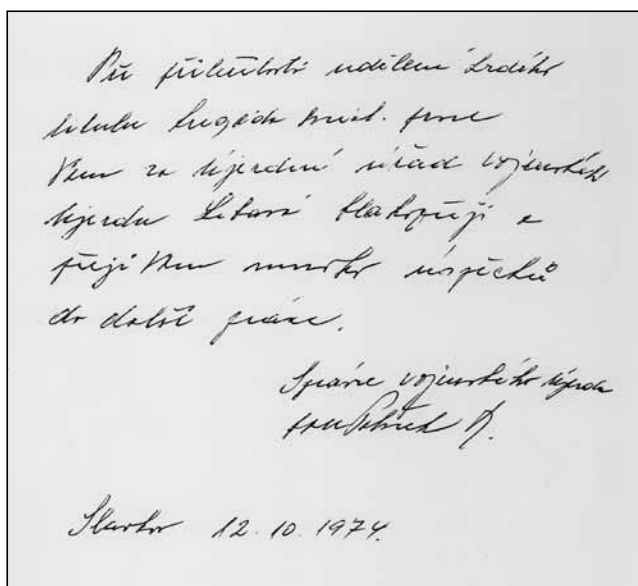 Při příležitosti udělení hrdého
titulu brigáda social. práce
Vám za újezdní úřad vojenského
újezdu Libavá blahopřeji a
přeji Vám mnoho úspěchů
do další práce.
Správce vojenského újezdu
12.10.1974.